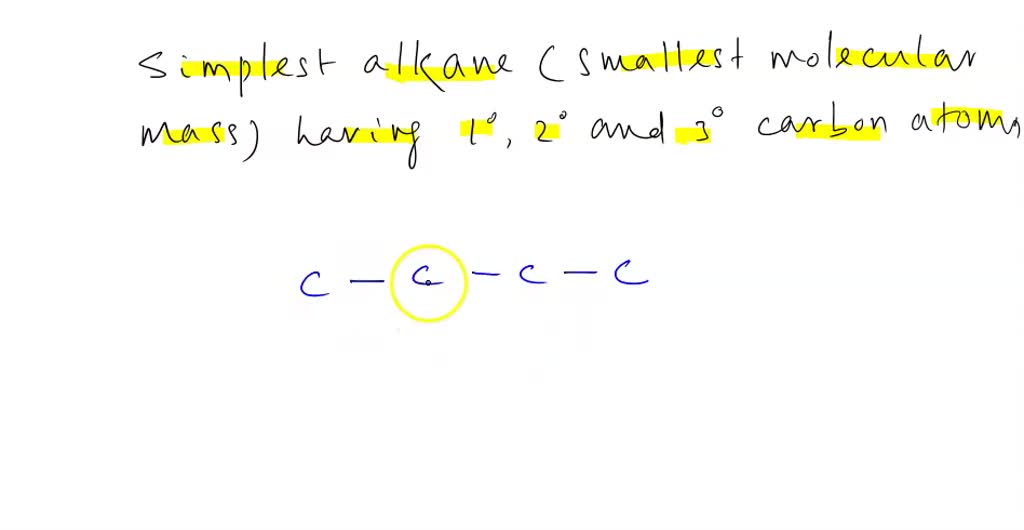 simplest alkane (smallest molecular
mass) having 1°, 2° and 3° carbon atoms
C - C - C - C